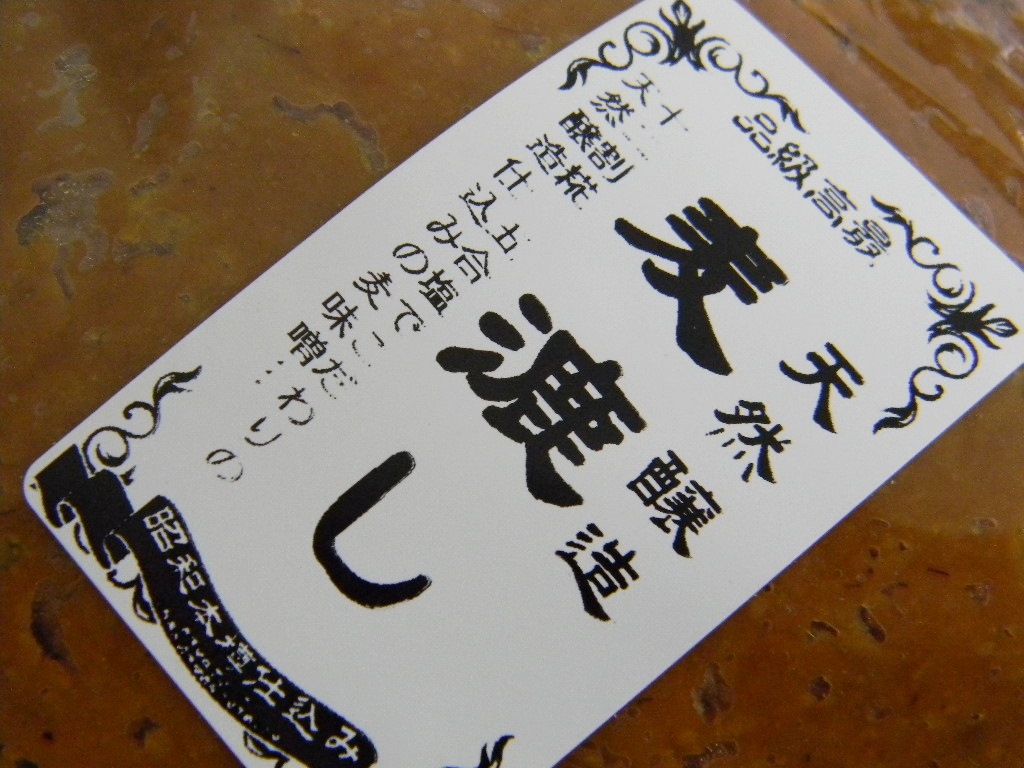 最高級品
天然醸造
麦漉し
十割糀 五合塩でこだわりの
天然醸造仕込みの麦味噌…
昭和本 仕込み